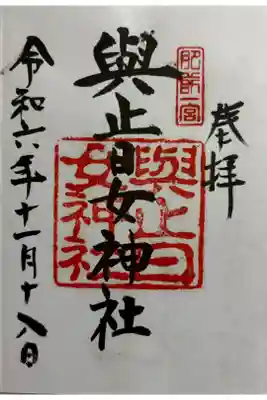 奉拝
肥前一宮
與止日女神社
與止日
女神社
令和六年十一月十八日